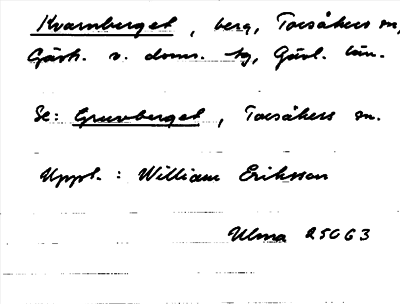 Kvarnberget, berg, Torsåkers sn,
Gästr. ö. doms. tg, Gävl. län.
Se: Gruvberget, Torsåkers sn.
Uppt. : William Eriksson
Ulma 25063